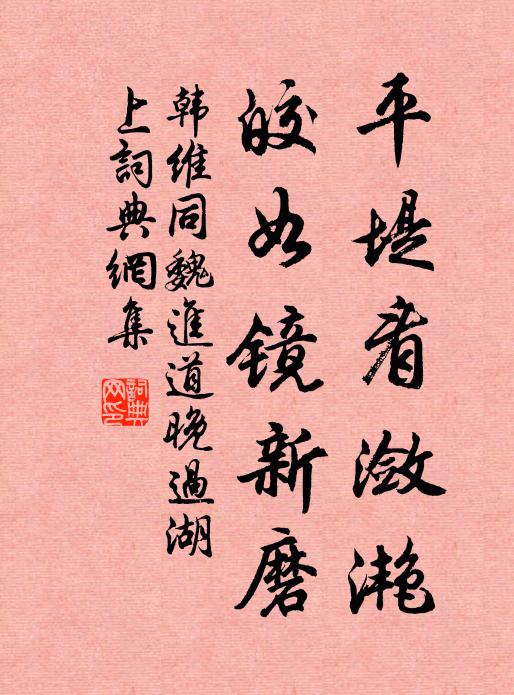 平堤看潋滟
皎如镜新磨
韩维同魏進道晚過湖
上詞典網集
詞典
网印